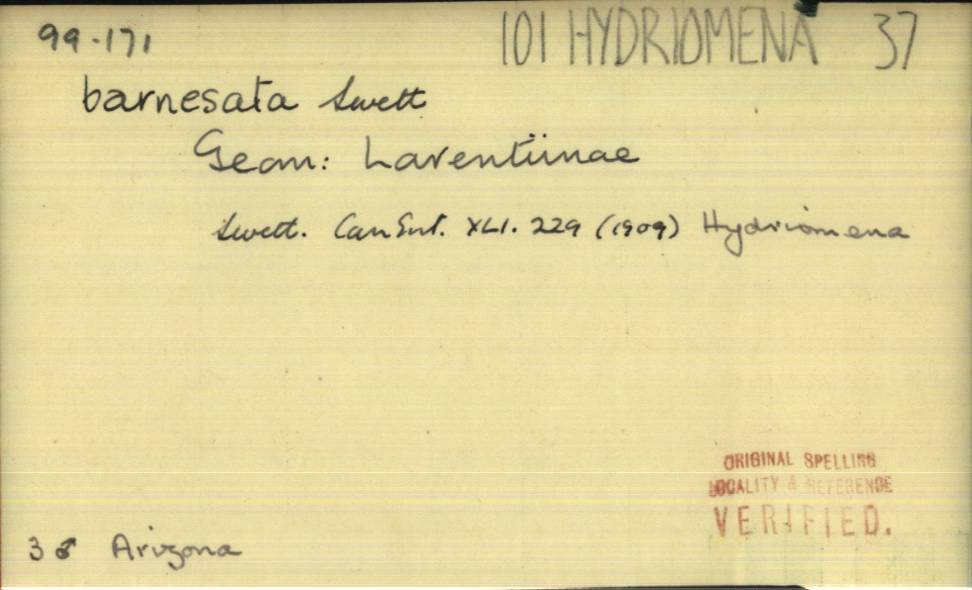 99-171 101 HYDRIOMENA 37
barnesata Swett
Geom: Larentiinae
Swett. Can Ent. XLI. 229 (1909) Hydriomena
ORIGINAL SPELLING
LOCALITY & REFERENCE
VERIFIED.
3 ♂ Arizona